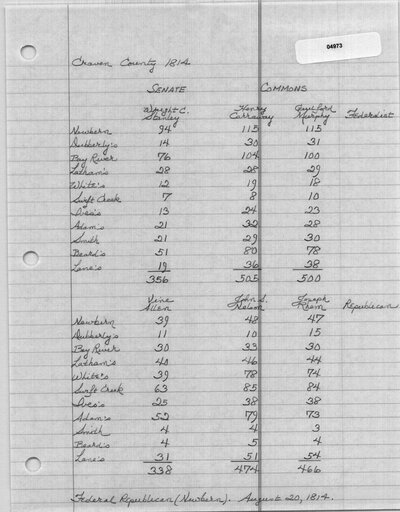 04973
Craven County 1814
SENATE COMMONS
Wright C. Stanley Henry Carraway Guilford Murphy Federalist
Newbern 94 115 115
Dubberly's 14 30 31
Bay River 76 104 100
Latham's 28 28 29
White's 12 19 18
Swift Creek 7 8 10
Ives's 13 24 23
Adam's 21 32 28
Smith 21 29 30
Beard's 51 80 78
Lane's 19 36 38
356 505 500
Vine Allen John S. Nelson Joseph Rhem Republican
Newbern 39 48 47
Dubberly's 11 10 15
Bay River 30 33 30
Latham's 40 46 44
White's 39 78 74
Swift Creek 63 85 84
Ives's 25 38 38
Adam's 52 79 73
Smith 4 4 3
Beard's 4 5 4
Lane's 31 51 54
338 474 466
Federal Republican (Newbern). August 20, 1814.